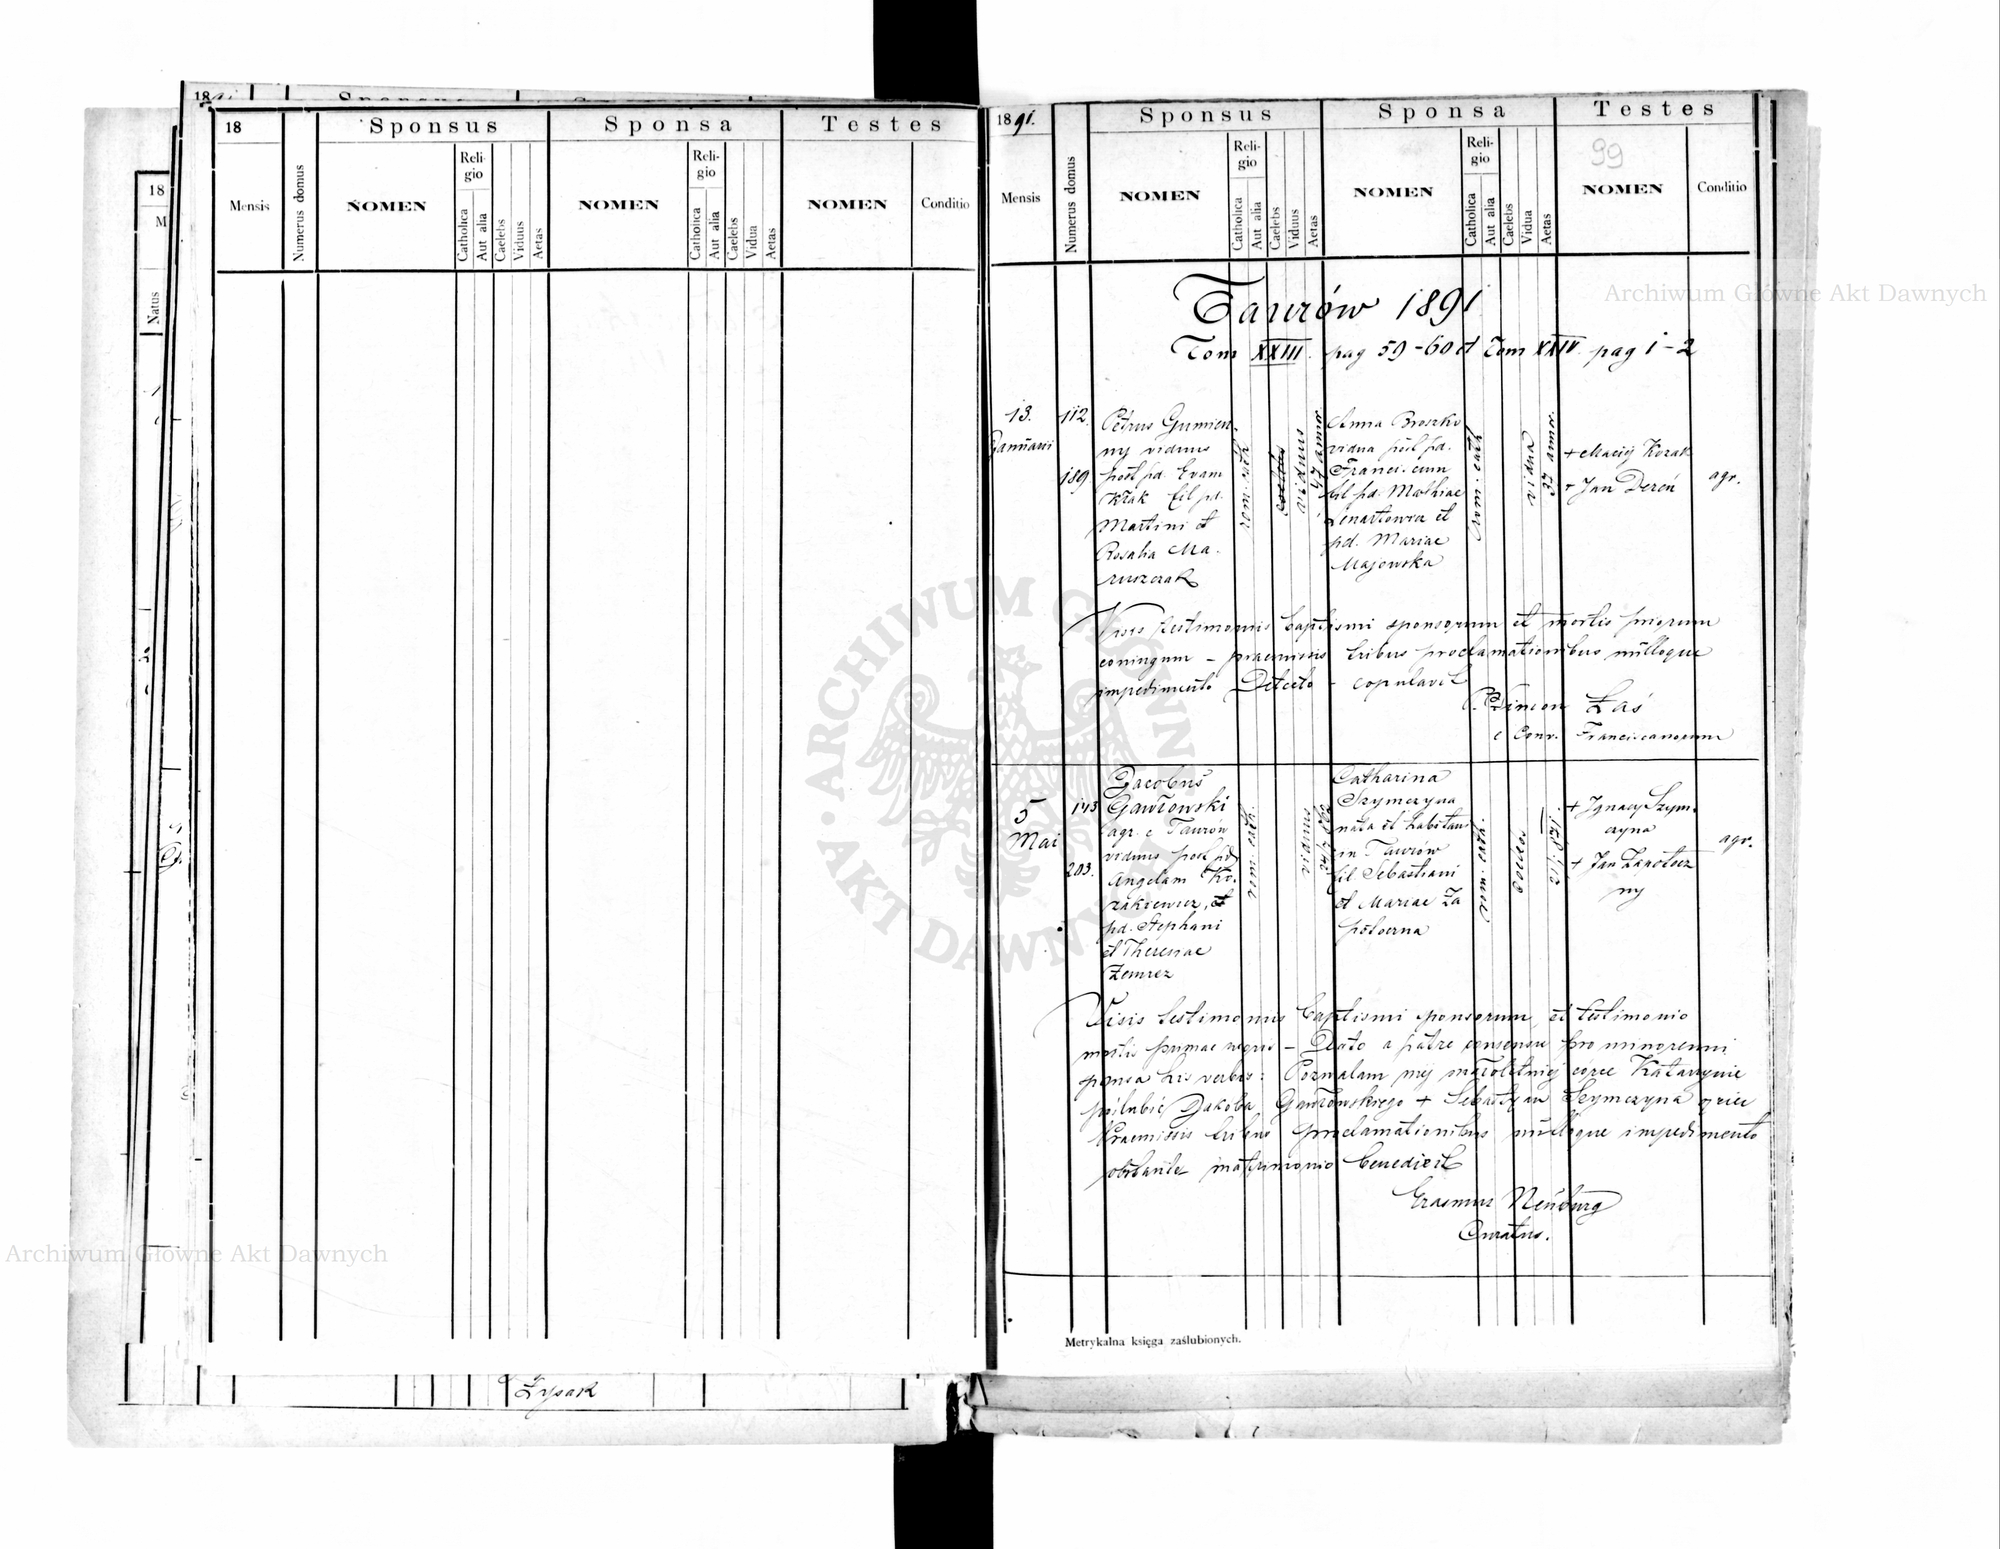 18 91.
Sponsus
18
Sponsus
Sponsa
Testes
Mensis
Numerus domus
NOMEN
Religio
Catholica
Aut alia
Caelebs
Viduus
Aetas
NOMEN
Religio
Catholica
Aut alia
Caelebs
Vidua
Aetas
NOMEN
Conditio
18
M
Natus
Żysak
1891.
Sponsus
Sponsa
Testes
99
Mensis
Numerus domus
NOMEN
Religio
Catholica
Aut alia
Caelebs
Viduus
Aetas
NOMEN
Religio
Catholica
Aut alia
Caelebs
Vidua
Aetas
NOMEN
Conditio
Taurów 1891
Tom XXIII. pag 59-60 et Tom XXIV. pag 1-2
13.
Januarii
112.
189
Petrus Gumien
ny viduus
post pd. Evam
Kłak fil pd.
Martini et
Rosalia Ma
ruszczak
rom. cath
viduus
47 annor.
Anna Broszko
vidua post pd.
Franciscum
fil pd. Mathiae
Lenartowicz et
pd. Mariae
Majewska
rom. cath
vidua
37 annor.
+ Maciej Kozak
+ Jan Dereń
agr.
Visis testimoniis baptismi sponsorum et mortis priorum
coniugum - praemissis tribus proclamationibus nulloque
impedimento detecto - copulavit
P. Simeon Łaś
e Conv. Franciscanorum
5
Mai
143
203.
Jacobus
Gawłowski
agr. e Taurów
viduus post pd
Angelam Ko
zakiewicz, et
pd. Stephani
et Theresiae
rom. cath.
viduus
Catharina
Szymczyna
nata et habitans
in Taurów
fil Sebastiani
et Mariae Za
płoczna
rom. cath.
coeles
+ Ignacy Szym
czyna
+ Jan
ny
agr.
Visis testimoniis baptismi sponsorum et testimonio
mortis primae uxoris - Dato a patre consensu pro minorenni
sponsa his verbis: Pozwalam mej małoletniej córce Katarzynie
poślubić Jakóba Gawłowskiego + Sebastyan Szymczyna ojciec
Praemissis tribus proclamationibus nulloque impedimento
obstante matrimonio benedixit
Erasmus Neuburg
Curatus.
Metrykalna księga zaślubionych.
Archiwum Główne Akt Dawnych
Archiwum Główne Akt Dawnych
ARCHIWUM GŁÓWNE AKT DAWNYCH